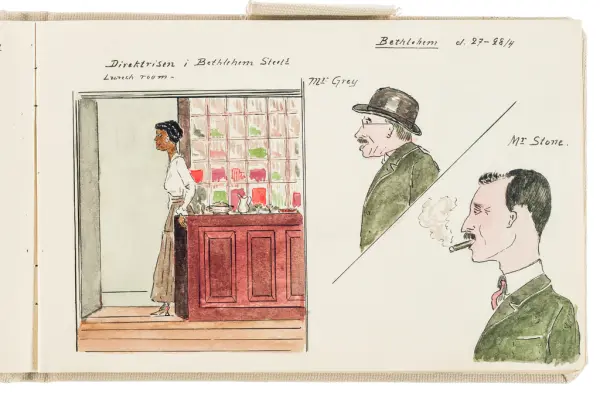 Bethlehem d. 27-28/4
Direktrisen i Bethlehem Steels
Lunch room -
Mr Grey
Mr Stone.